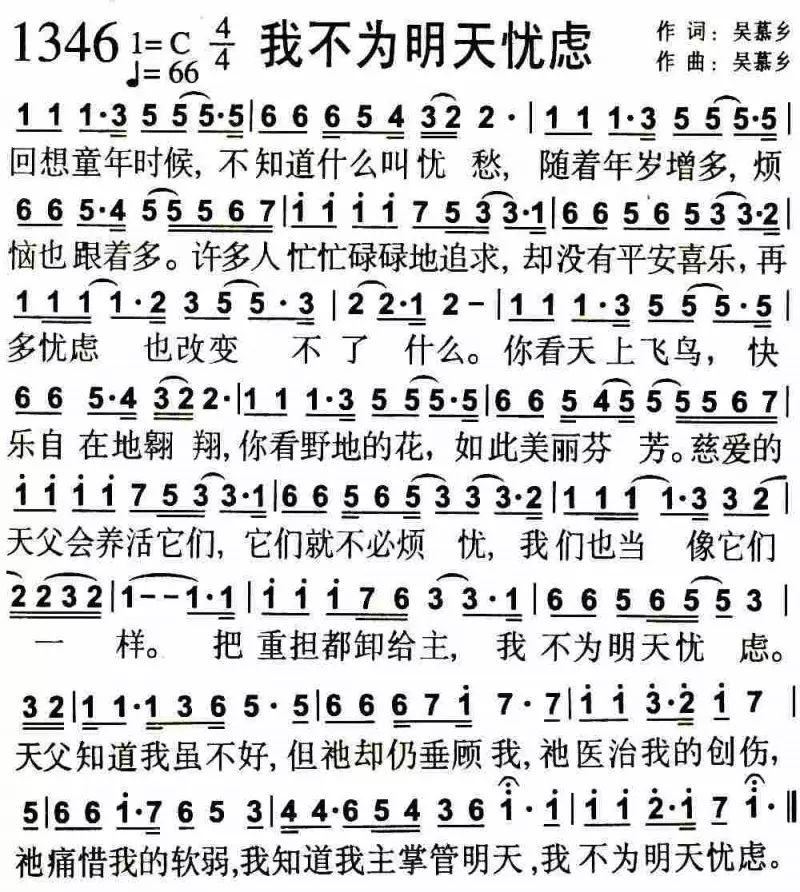 1346 1=C 4/4 我不为明天忧虑 作 词: 吴慕乡
♩=66 作 曲: 吴慕乡
1 1 1·3 5 5 5·5|6 6 6 5 4 3 2 2·|1 1 1·3 5 5 5·5|
回想童年时候, 不知道什么叫忧 愁, 随着年岁增多, 烦
6 6 5·4 5 5 5 6 7|i i i i 7 5 3 3·1|6 6 5 6 5 3 3·2|
恼也跟着多。许多人忙忙碌碌地追求, 却没有平安喜乐, 再
1 1 1 1·2 3 5 5·3|2 2·1 2 -|1 1 1·3 5 5 5·5|
多忧虑 也改变 不了 什么。你看天上飞鸟, 快
6 6 5·4 3 2 2·|1 1 1·3 5 5 5·5|6 6 5 4 5 5 5 6 7|
乐自在地翱 翔, 你看野地的花, 如此美丽芬 芳。慈爱的
i i i i 7 5 3 3·1|6 6 5 6 5 3 3·2|1 1 1 1·3 3 2|
天父会养活它们, 它们就不必烦 忧, 我们也当 像它们
2 2 3 2|1 - - 1·1|i i i 7 6 3 3·1|6 6 5 6 5 5 3|
一 样。 把 重担都卸给主, 我 不为明天忧 虑。
3 2|1 1·1 3 6 5·5|6 6 6 7 i 7·7|i i 3·2 i 7|
天父知道我虽不好, 但祂却仍垂顾我, 祂医治我的创伤,
5|6 6 i·7 6 5 3|4 4·6 5 4 3 6 i·i|i i 2·i 7 i·‖
祂痛惜我的软弱, 我知道我主掌管明天, 我 不为明天忧虑。